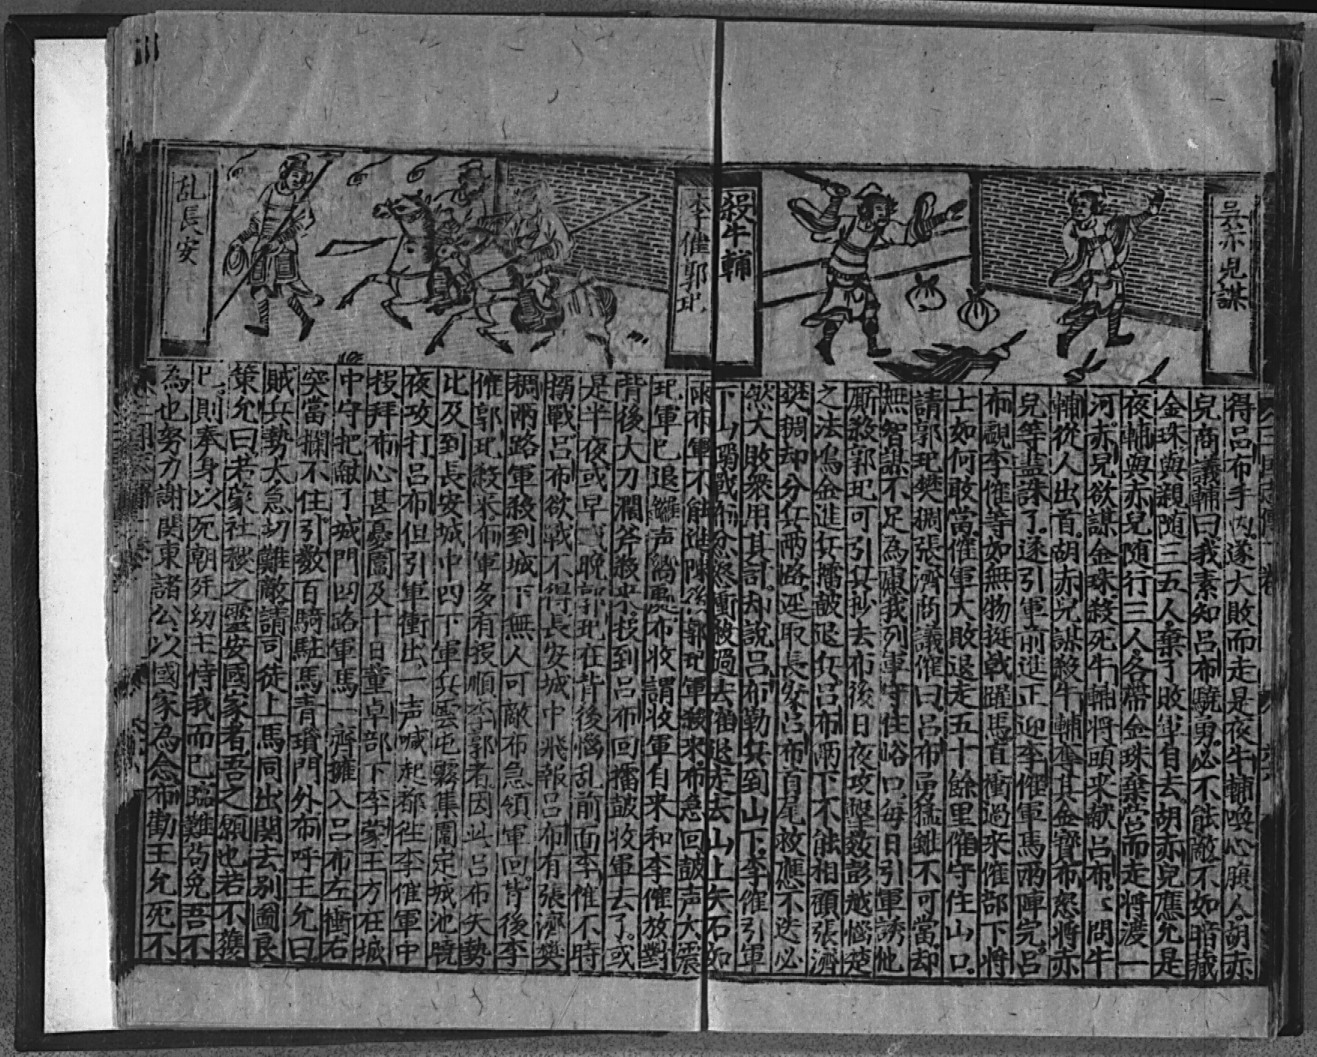 吴赤兒謀
殺牛輔
得呂布手內遂大敗而走是夜牛輔喚心腹人胡赤
兒商議輔曰我素知呂布驍勇必不能敵不如暗藏
金珠與親随三五人棄了敗軍自去胡赤兒應允是
夜輔與赤兒随行三人各帶金珠棄營而走將渡一
河赤兒欲謀金珠殺死牛輔將頭來献呂布布問牛
輔從人出首胡赤兒謀殺牛輔奪其金寶布怒將赤
兒等盡誅了遂引軍前進正迎李傕軍馬兩陣完呂
布覷李傕等如無物挺戟躍馬直衝過來傕部下將
士如何敢當傕軍大敗退走五十餘里傕守住山口
請郭汜樊稠張濟商議傕曰呂布勇猛雖不可當却
無智謀不足為慮我列軍守住峪口每日引軍誘他
厮殺郭汜可引兵抄去布後日夜攻擊效彭越惱楚
之法鳴金進兵擂皷退兵呂布兩下不能相顧張濟
樊稠却分兵兩路逕取長安呂布首尾救應不迭必
然大敗衆用其計却說呂布勒兵到山下李傕引軍
下山搦戰布忿怒衝殺過去傕退走去山上矢石如
雨布軍不能進陣後郭汜軍殺來布急回皷声大震
李傕郭汜
乱長安
汜軍已退鑼声响處布收軍收軍自來和李傕放對
背後大刀濶斧殺來投到呂布回擂皷收軍去了或
是半夜或早或晚郭汜在背後惱乱前面李傕不時
搦戰呂布欲戰不得長安城中飛報呂布有張濟樊
稠兩路軍殺到城下無人可敵布急領軍回背後李
傕郭汜殺來布軍多有投順李郭者因此呂布失勢
比及到長安城中四下軍兵雲屯霧集圍定城池曉
夜攻打呂布但引軍衝出一声喊起都徃李傕軍中
投拜布心甚憂悶及十日董卓部下李蒙王方在城
中守把献了城門四路軍馬一齊擁入呂布左衝右
突當攔不住引數百騎駐馬青瑣門外布呼王允曰
賊兵勢大急切難敵請司徒上馬同出関去別圖良
策允曰若蒙社稷之靈安國家者吾之願也若不獲
已則奉身以死朝廷幼主恃我而已臨難苟免吾不
為也努力謝関東諸公以國家為念布勸王允死不